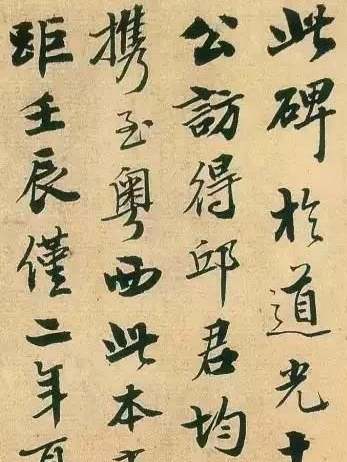 此碑於道光十
公訪得邱君均
携至粵西此本
距壬辰僅二年